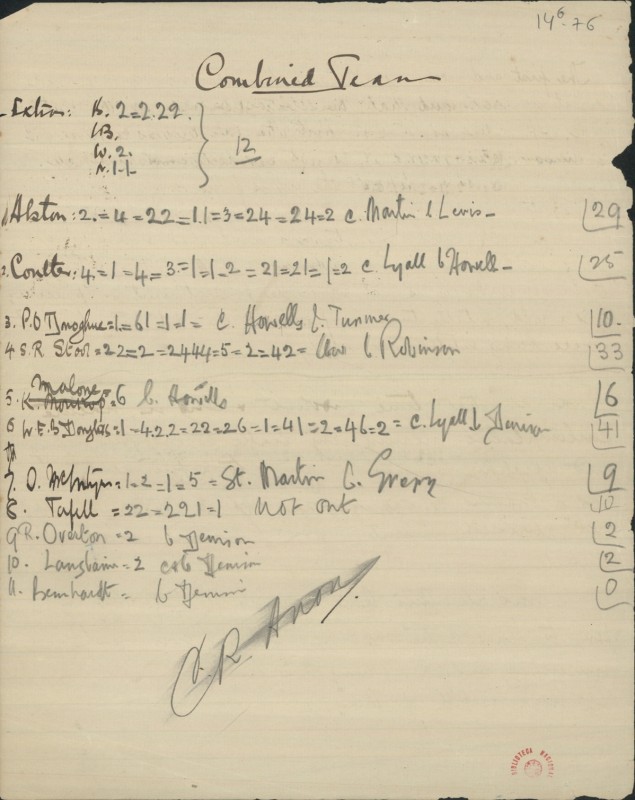 14 6. 76
Combined Team
Extras: B. 2=2.22.
LB.
W. 2.
N. 1-1
12
1. Alston: 2.=4=22=1.1=3=24=24=2 c. Martin b Lewis- 29
2. Coulter: 4.=1=4=3.=1=1-2=21=21=1=2 c. Lyall b Howell- 25
3. P. O Donoghue=1=61=1=1= c. Howells b. 10.
4 S.R. =22=2=2444=5=2=42= b Robinson 33
5. Malone=6 b. Howells 6
6 W.E.B Douglas=1=4.2.2=22=26=1=41=2=46=2= c. Lyall b Denison 41
7. O. McIntyre=1=2=1=5= St. Martin b. 9
8. =22=221=1 Not out 10
9 R. Overton=2 b Denison 2
10. Langlaine=2 c&b Denison 2
11. Bernhardt= b Denison 0
BIBLIOTECA NACIONAL